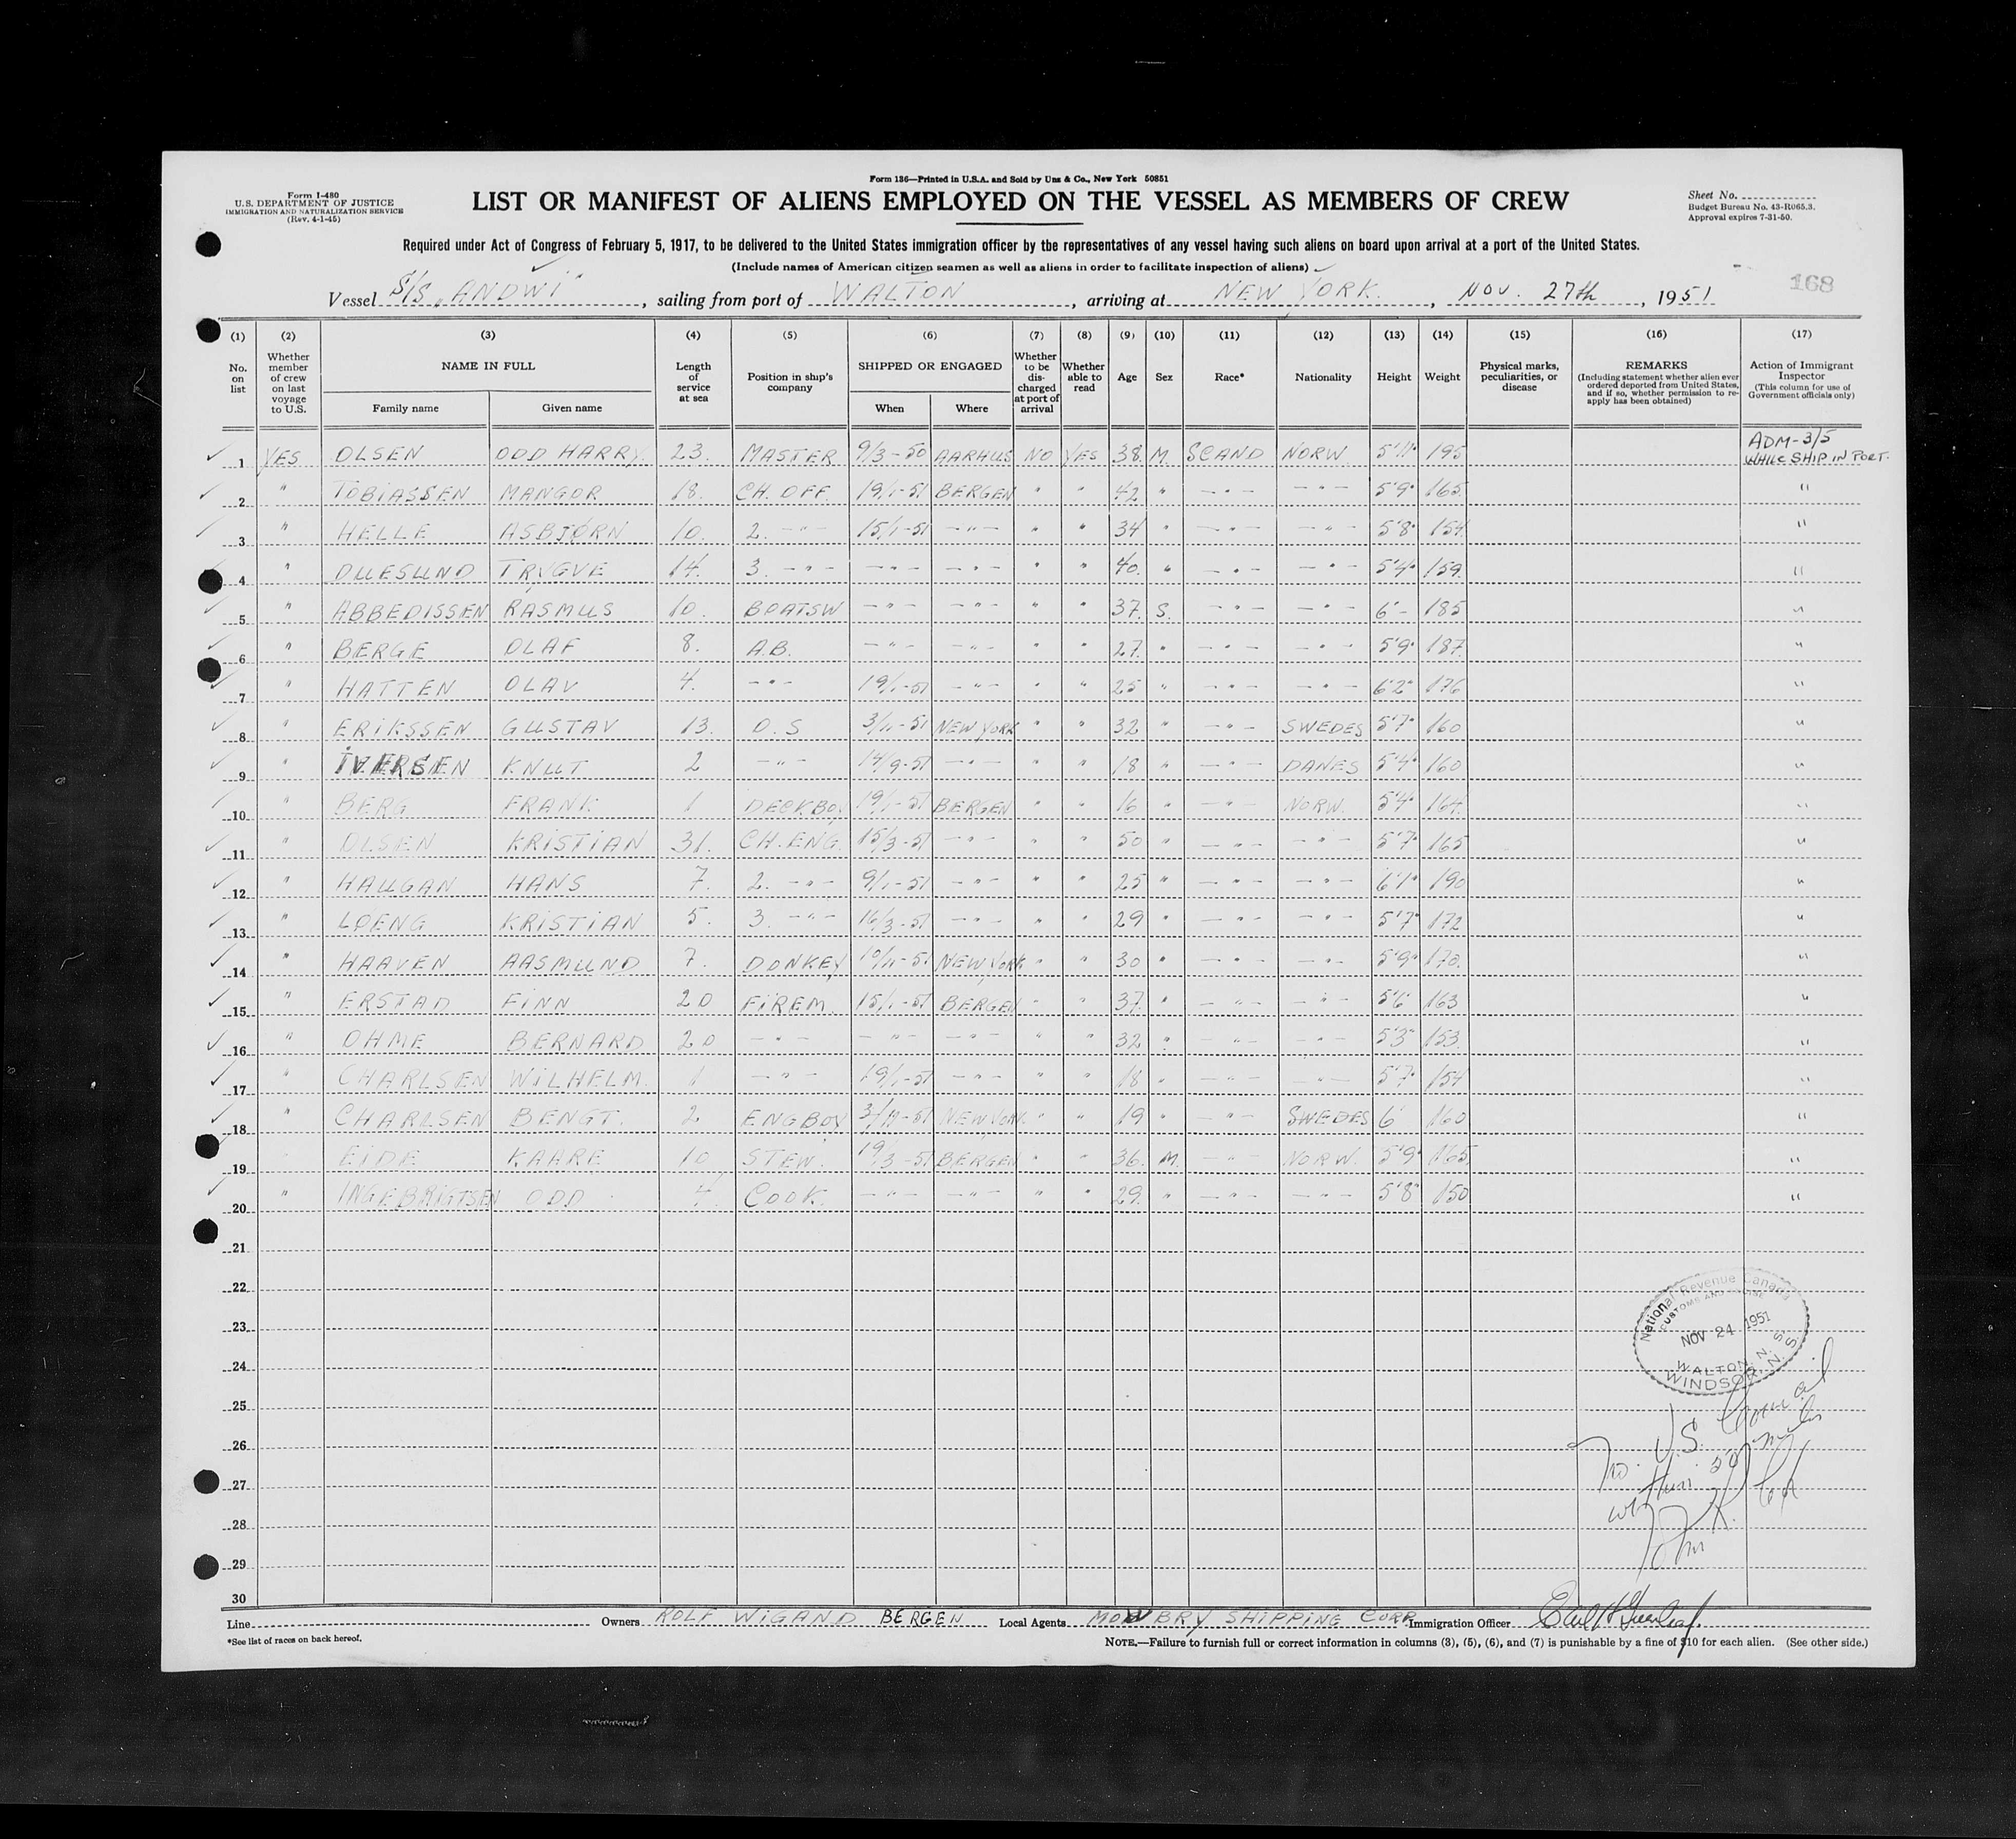 Form 136—Printed in U.S.A. and Sold by Unz & Co., New York 50851
Form I-480
U.S. DEPARTMENT OF JUSTICE
IMMIGRATION AND NATURALIZATION SERVICE
(Rev. 4-1-45)
LIST OR MANIFEST OF ALIENS EMPLOYED ON THE VESSEL AS MEMBERS OF CREW
Sheet No.
Budget Bureau No. 43-R065.3.
Approval expires 7-31-50.
Required under Act of Congress of February 5, 1917, to be delivered to the United States immigration officer by the representatives of any vessel having such aliens on board upon arrival at a port of the United States.
(Include names of American citizen seamen as well as aliens in order to facilitate inspection of aliens)
168
Vessel S/S "ANDWI", sailing from port of WALTON, arriving at NEW YORK, NOV. 27th, 1951
(1) (2) (3) (4) (5) (6) (7) (8) (9) (10) (11) (12) (13) (14) (15) (16) (17)
No. on list
Whether member of crew on last voyage to U.S.
NAME IN FULL
Family name Given name
Length of service at sea
Position in ship's company
SHIPPED OR ENGAGED
When Where
Whether to be discharged at port of arrival
Whether able to read
Age
Sex
Race*
Nationality
Height
Weight
Physical marks, peculiarities, or disease
REMARKS
(Including statement whether alien ever ordered deported from United States, and if so, whether permission to reapply has been obtained)
Action of Immigrant Inspector
(This column for use of Government officials only)
1 YES OLSEN ODD HARRY 23. MASTER 9/3-50 AARHUS NO YES 38. M. SCAND NORW. 5'11" 195 ADM-3/5 WHILE SHIP IN PORT.
2 " TOBIASSEN MANGOR 18. CH. OFF. 19/1-51 BERGEN " " 42 " —"— —"— 5'9" 165. "
3 " HELLE ASBJØRN 10. 2. —"— 15/1-51 —"— " " 34 " —"— —"— 5'8" 154. "
4 " DUESUND TRYGVE 14. 3. —"— —"— —"— " " 40. " —"— —"— 5'4" 159. "
5 " ABBEDISSEN RASMUS 10. BOATSW —"— —"— " " 37. S. —"— —"— 6'- 185 "
6 " BERGE OLAF 8. A.B. —"— —"— " " 27. " —"— —"— 5'9" 187. "
7 " HATTEN OLAV 4. —"— 19/1-51 —"— " " 25 " —"— —"— 6'2" 176 "
8 " ERIKSSEN GUSTAV 13. O.S 3/11-51 NEW YORK " " 32 " —"— SWEDES 5'7" 160 "
9 " IVERSEN KNUT 2 —"— 14/9-51 —"— " " 18 " —"— DANES 5'4" 160 "
10 " BERG FRANK 1 DECKBOY 19/1-51 BERGEN " " 16 " —"— NORW. 5'4" 164. "
11 " OLSEN KRISTIAN 31. CH. ENG. 15/3-51 —"— " " 50 " —"— —"— 5'7" 165 "
12 " HAUGAN HANS 7. 2. —"— 9/1-51 —"— " " 25 " —"— —"— 6'1" 190 "
13 " LØENG KRISTIAN 5. 3. —"— 16/3-51 —"— " " 29 " —"— —"— 5'7" 172 "
14 " HAAVEN AASMUND 7. DONKEY 10/11-51 NEW YORK " " 30 " —"— —"— 5'9" 170. "
15 " ERSTAD FINN 20 FIREM. 15/1-51 BERGEN " " 37. " —"— —"— 5'6" 163 "
16 " OHME BERNARD 20 —"— —"— —"— " " 32 " —"— —"— 5'3" 153. "
17 " CHARLSEN WILHELM. 1 —"— 19/1-51 —"— " " 18 " —"— —"— 5'7" 154 "
18 " CHARLSEN BENGT. 2 ENGBOY 3/11-51 NEW YORK " " 19 " —"— SWEDES 6' 160 "
19 EIDE KAARE 10 STEW. 19/3-51 BERGEN " " 36. M. —"— NORW. 5'9" 165. "
20 " INGEBRIGTSEN ODD 4. COOK. —"— —"— " " 29. " —"— —"— 5'8" 150 "
21
22
23
24
25
26
27
28
29
30
National Revenue Canada
CUSTOMS AND EXCISE
NOV 24 1951
WALTON, N.S.
WINDSOR, N.S.
No. U.S. Consul
within 50 miles
John
Line Owners ROLF WIGAND BERGEN Local Agents MOWBRY SHIPPING CORP. Immigration Officer
*See list of races on back hereof.
NOTE.—Failure to furnish full or correct information in columns (3), (5), (6), and (7) is punishable by a fine of $10 for each alien. (See other side.)